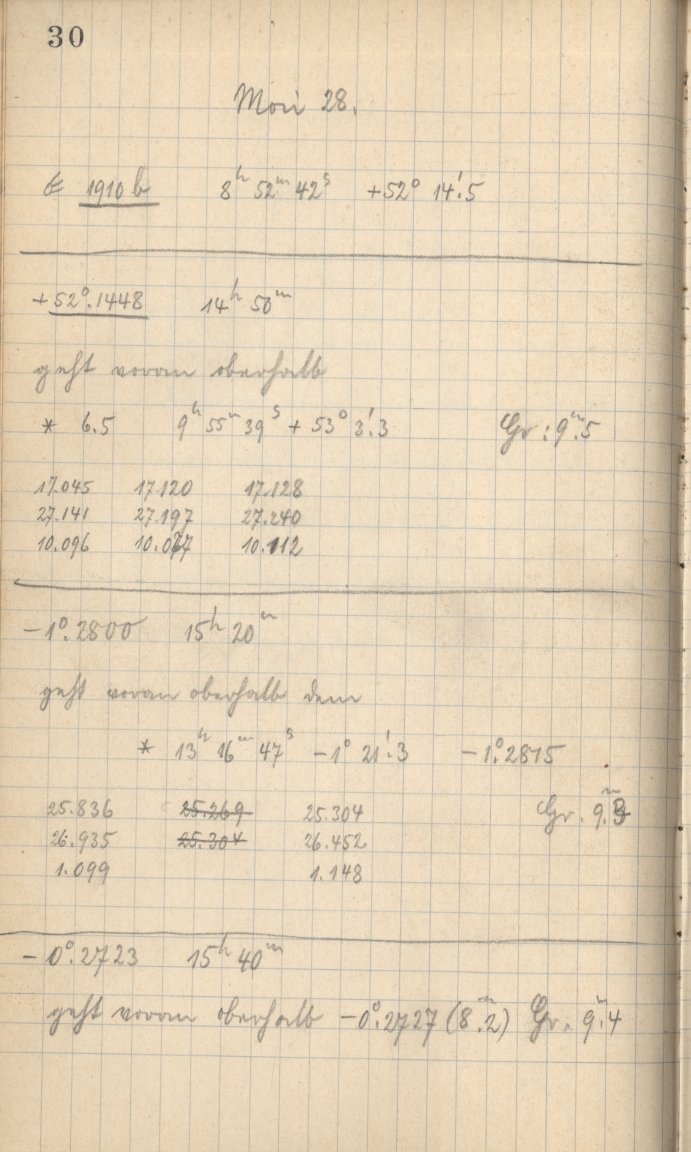 30
Mai 28.
1910 b 8h 52m 42s +52° 14'.5
+52°.1448 14h 50m
geht voran oberhalb
* 6.5 9h 55m 39s + 53° 3'.3 Gr: 9m.5
17.045 17.120 17.128
27.141 27.197 27.240
10.096 10.077 10.112
-1°.2800 15h 20m
geht voran oberhalb dem
* 13h 16m 47s -1° 21'.3 -1°.2815
25.836 25.269 25.304 Gr. 9m.3
26.935 25.304 26.452
1.099 1.148
-0°.2723 15h 40m
geht voran oberhalb -0°.2727 (8m.2) Gr. 9m.4